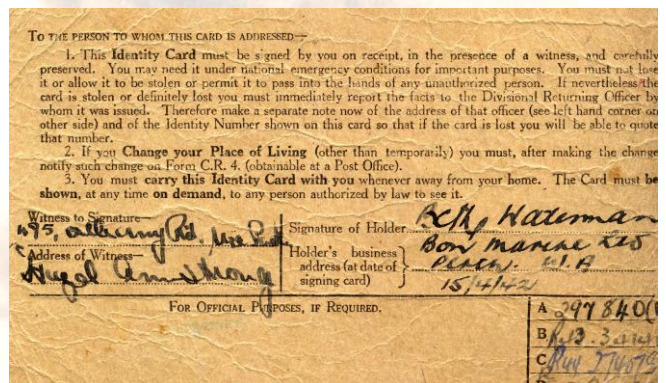 TO THE PERSON TO WHOM THIS CARD IS ADDRESSED—
1. This Identity Card must be signed by you on receipt, in the presence of a witness, and carefully
preserved. You may need it under national emergency conditions for important purposes. You must not lose
it or allow it to be stolen or permit it to pass into the hands of any unauthorized person. If nevertheless the
card is stolen or definitely lost you must immediately report the facts to the Divisional Returning Officer by
whom it was issued. Therefore make a separate note now of the address of that officer (see left hand corner on
other side) and of the Identity Number shown on this card so that if the card is lost you will be able to quote
that number.
2. If you Change your Place of Living (other than temporarily) you must, after making the change
notify such change on Form C.R. 4. (obtainable at a Post Office).
3. You must carry this Identity Card with you whenever away from your home. The Card must be
shown, at any time on demand, to any person authorized by law to see it.
Witness to Signature—
495,
Address of Witness—
Hazel Armstrong
Signature of Holder Betty Waterman
Holder's business
address (at date of
signing card)
Bon Marche Ltd
Perth. W.A
15/4/42
FOR OFFICIAL PURPOSES, IF REQUIRED.
A 297840
B
C